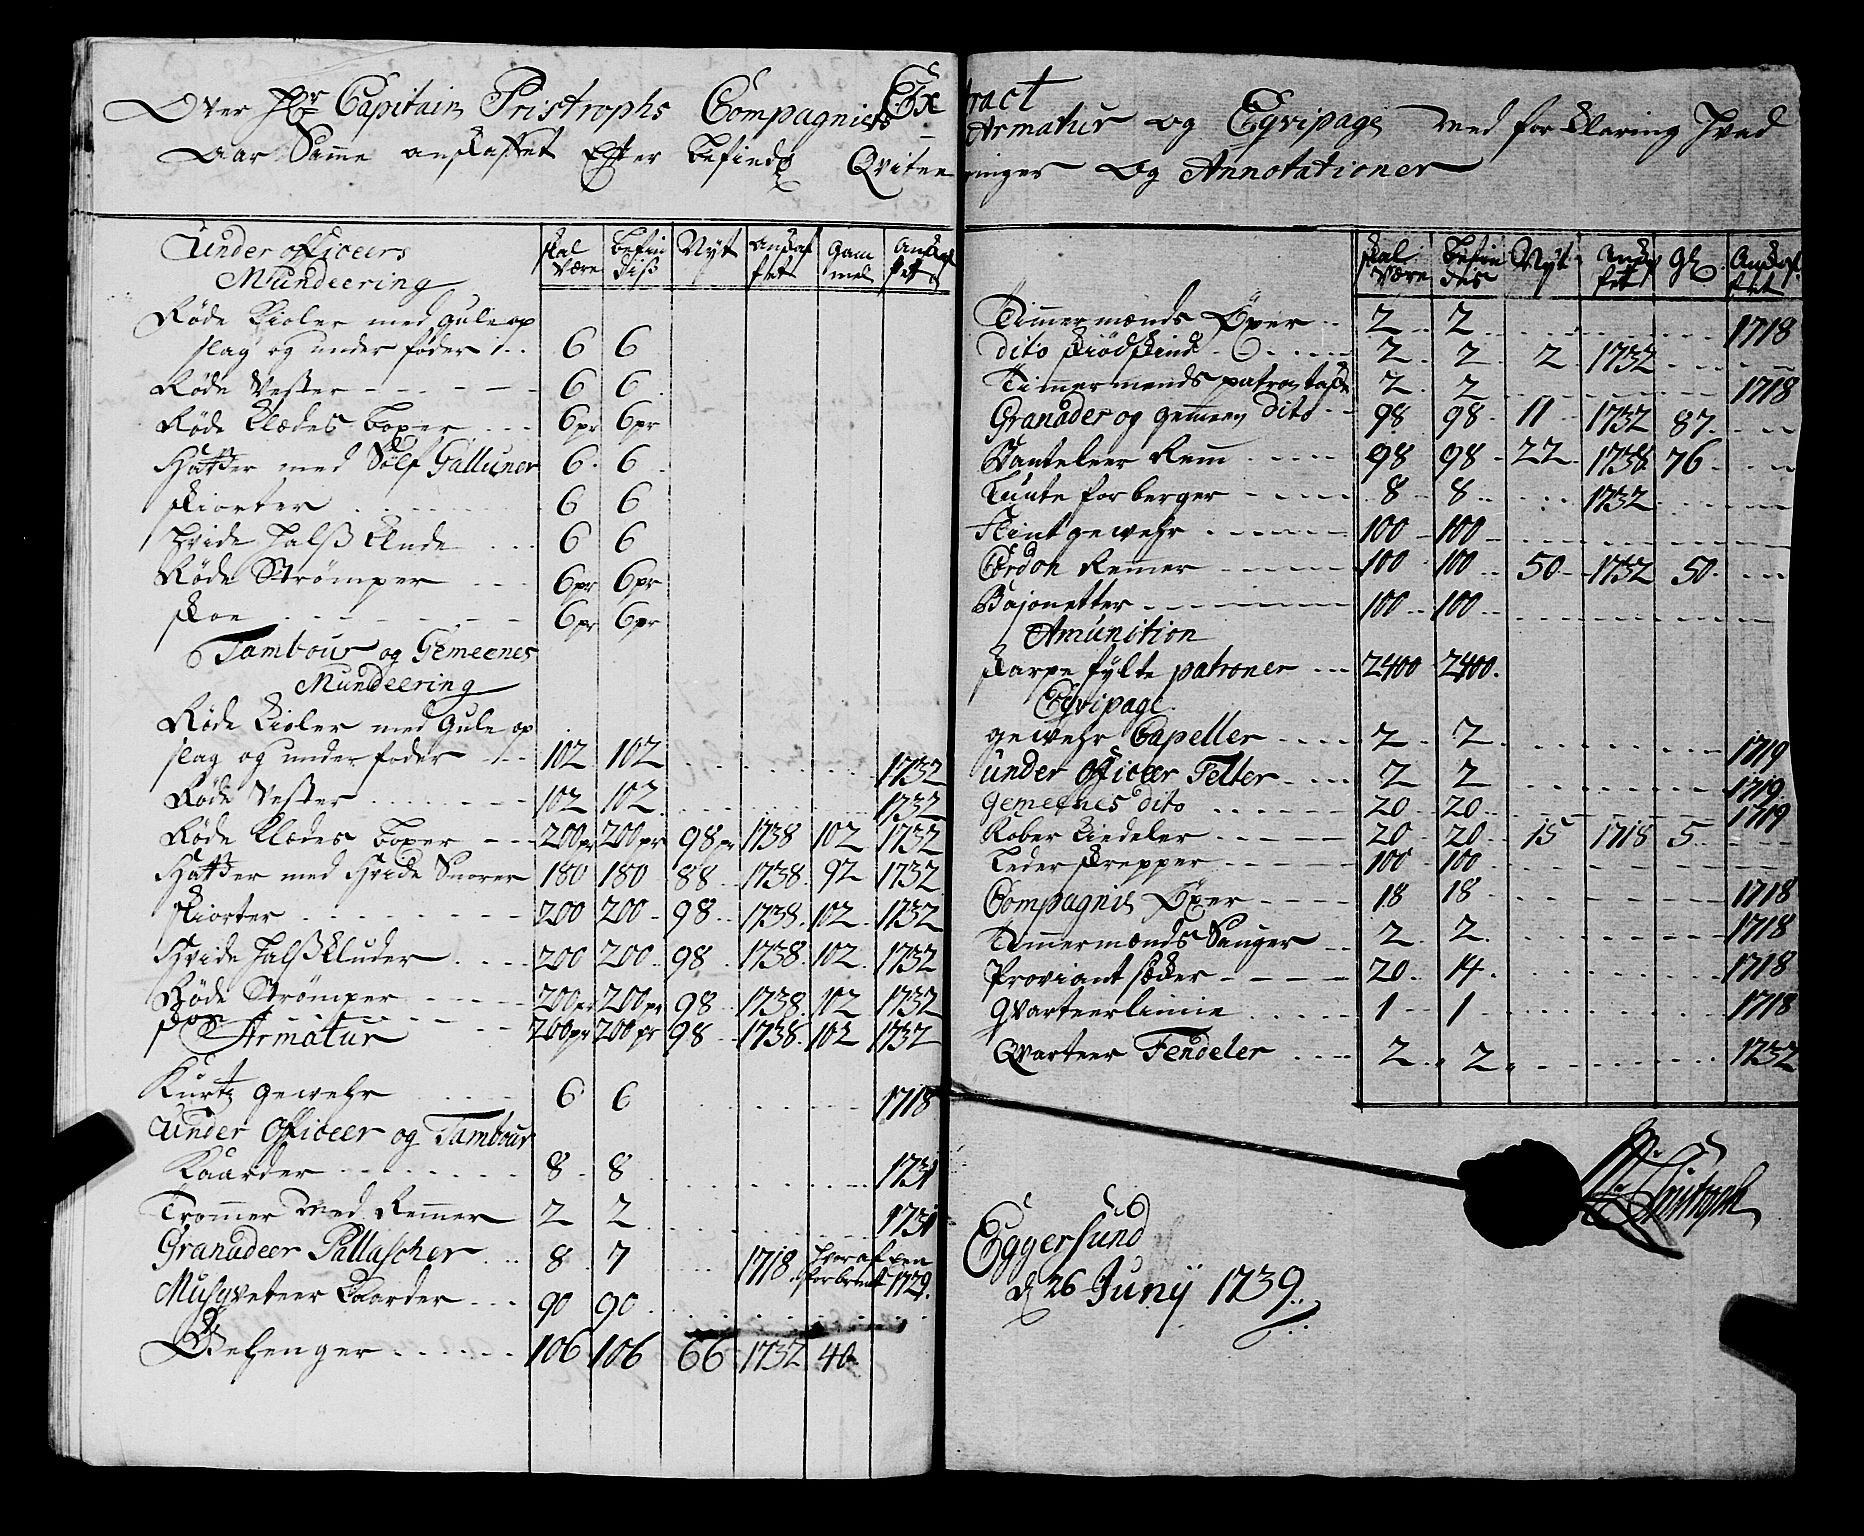 Extract
Over Hr Capitain Pristrophs Compagnies Armatur og Eqvipage med forklaring hvad
Aar Samme anskaffet Efter befindende Qvitteringer Og Annotationer
Under officeers
Mundeering
skal være befindis Nyt anskaffet Gammel anskaffet
Røde Kioler med gule op
slag og under foder 6 6
Røde Vester 6 6
Røde Klædes boxer 6pr 6pr
Hatter med Sølf Galluner 6 6
skiorter 6 6
Hvide halsklude 6 6
Røde Strømper 6pr 6pr
skoe 6pr 6pr
Tambour og Gemeenes
Mundeering
Røde Kioler med Gule op
slag og under foder 102 102 1732
Røde Vester 102 102 1732
Røde Klædes boxer 200pr 200pr 98pr 1738 102 1732
Hatter med Hvide Snorer 180 180 88 1738 92 1732
skiorter 200 200 98 1738 102 1732
Hvide halskluder 200 200 98 1738 102 1732
Røde Strømper 200pr 200pr 98 1738 102 1732
skoe 200pr 200pr 98 1738 102 1732
Armatur
Kurtz gewehr 6 6 1718
Under Officeer og Tambour
Kaarder 8 8 1731
Trommer med Remmer 2 2 1731
Granadeer Pallascher 8 7 1718 hvoraf een
forbrendt 1729
Musqveteer Kaarder 90 90
Gehenger 106 106 66 1732 40
skal være befindes Nyt anskaffet gl. anskaffet
Timmermænds Öxer 2 2 1718
dito skiødskind 2 2 2 1732
Timmermends patrontaske 2 2 1718
Granader og gemeen dito 98 98 11 1732 87
Banteleer Rem 98 98 22 1738 76
Lunte forberger 8 8 1732
Flintgewehr 100 100
Cordon Remer 100 100 50 1732 50
Bajonetter 100 100
Amunition
skarpe fylte patroner 2400 2400
Eqvipage
gewehr Capeller 2 2 1719
under Officeer Telter 2 2 1719
Gemeenes dito 20 20 1719
Kober Kiedeler 20 20 15 1718 5
Leder skrepper 100 100
Compagnie Öxer 18 18 1718
Timmermænds Sauger 2 2 1718
Proviant sæker 20 14 1718
qvarteerlinie 1 1 1718
Qvarteer Fendeler 2 2 1732
Eggersund
d 26 Junij 1739